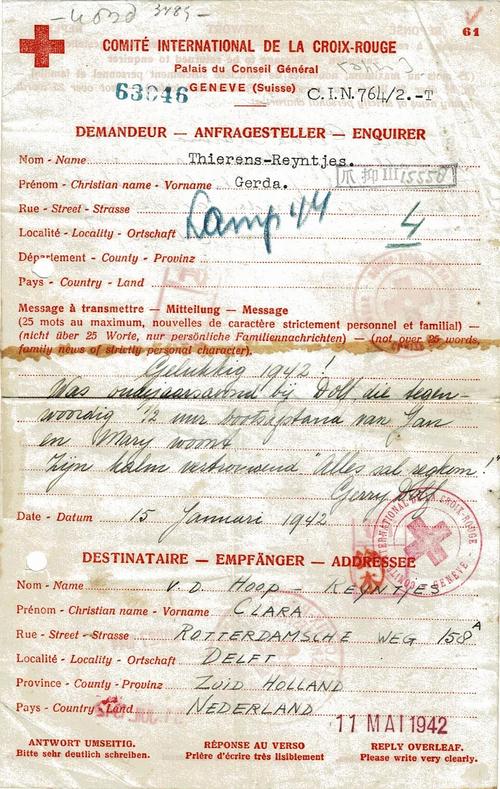 61
COMITÉ INTERNATIONAL DE LA CROIX-ROUGE
Palais du Conseil Général
GENEVE (Suisse)
63946
C.I.N.764/2.-T
DEMANDEUR — ANFRAGESTELLER — ENQUIRER
Nom - Name Thierens-Reyntjes.
Prénom - Christian name - Vorname Gerda.
15550
Rue - Street - Strasse
Kamp 44
4
Localité - Locality - Ortschaft
Département - County - Provinz
Pays - Country - Land
Message à transmettre — Mitteilung — Message
(25 mots au maximum, nouvelles de caractère strictement personnel et familial) —
(nicht über 25 Worte, nur persönliche Familiennachrichten) — (not over 25 words,
family news of strictly personal character).
Gelukkig 1942!
Was oudejaarsavond bij Dolf, die tegen-
woordig 1/2 uur bootsafstand van Jan
en Mary woont
Zijn kalm vertrouwend "Alles sal regkom!"
Gerry Dolf
Date - Datum 15 Januari 1942
DESTINATAIRE — EMPFÄNGER — ADDRESSEE
Nom - Name V.D. HOOP - REYNTJES
Prénom - Christian name - Vorname CLARA
Rue - Street - Strasse ROTTERDAMSCHE WEG 158A
Localité - Locality - Ortschaft DELFT
Province - County - Provinz ZUID HOLLAND
Pays - Country - Land NEDERLAND
11 MAI 1942
ANTWORT UMSEITIG.
Bitte sehr deutlich schreiben.
RÉPONSE AU VERSO
Prière d'écrire très lisiblement
REPLY OVERLEAF.
Please write very clearly.